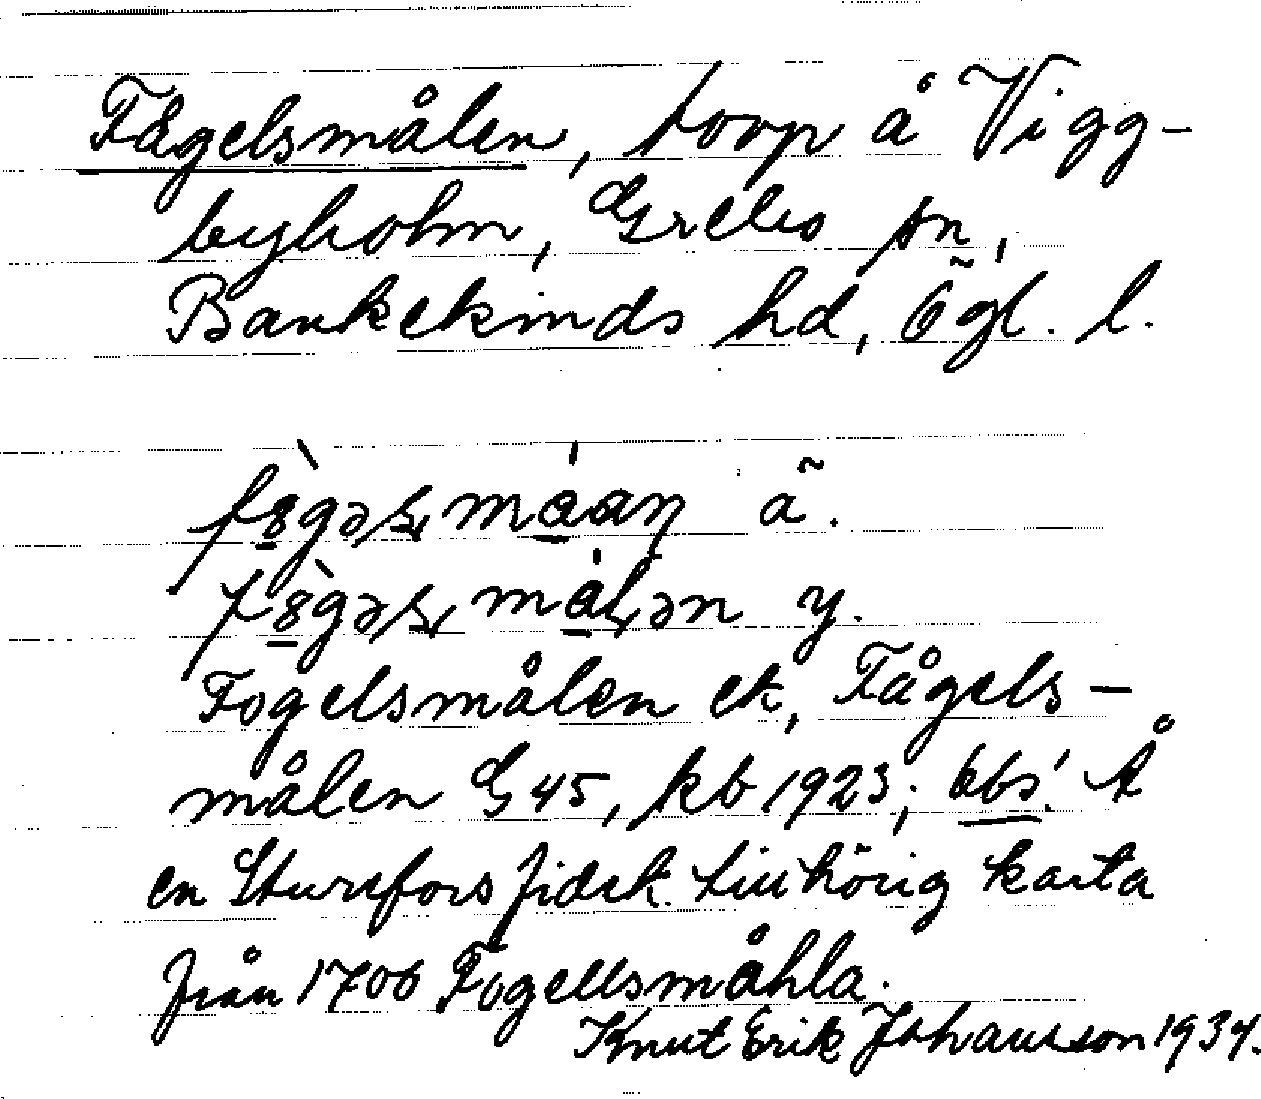 Fågelsmålen, torp å Vigg-
byholm, Grebo sn,
Bankekinds hd, Ögl. l.
ã.
y.
Fogelsmålen ek, Fågels-
målen G45, kb 1923; obs! Å
en Sturefors fidek. tillhörig karta
från 1706 Fogellsmåhla.
Knut Erik Johansson 1934.